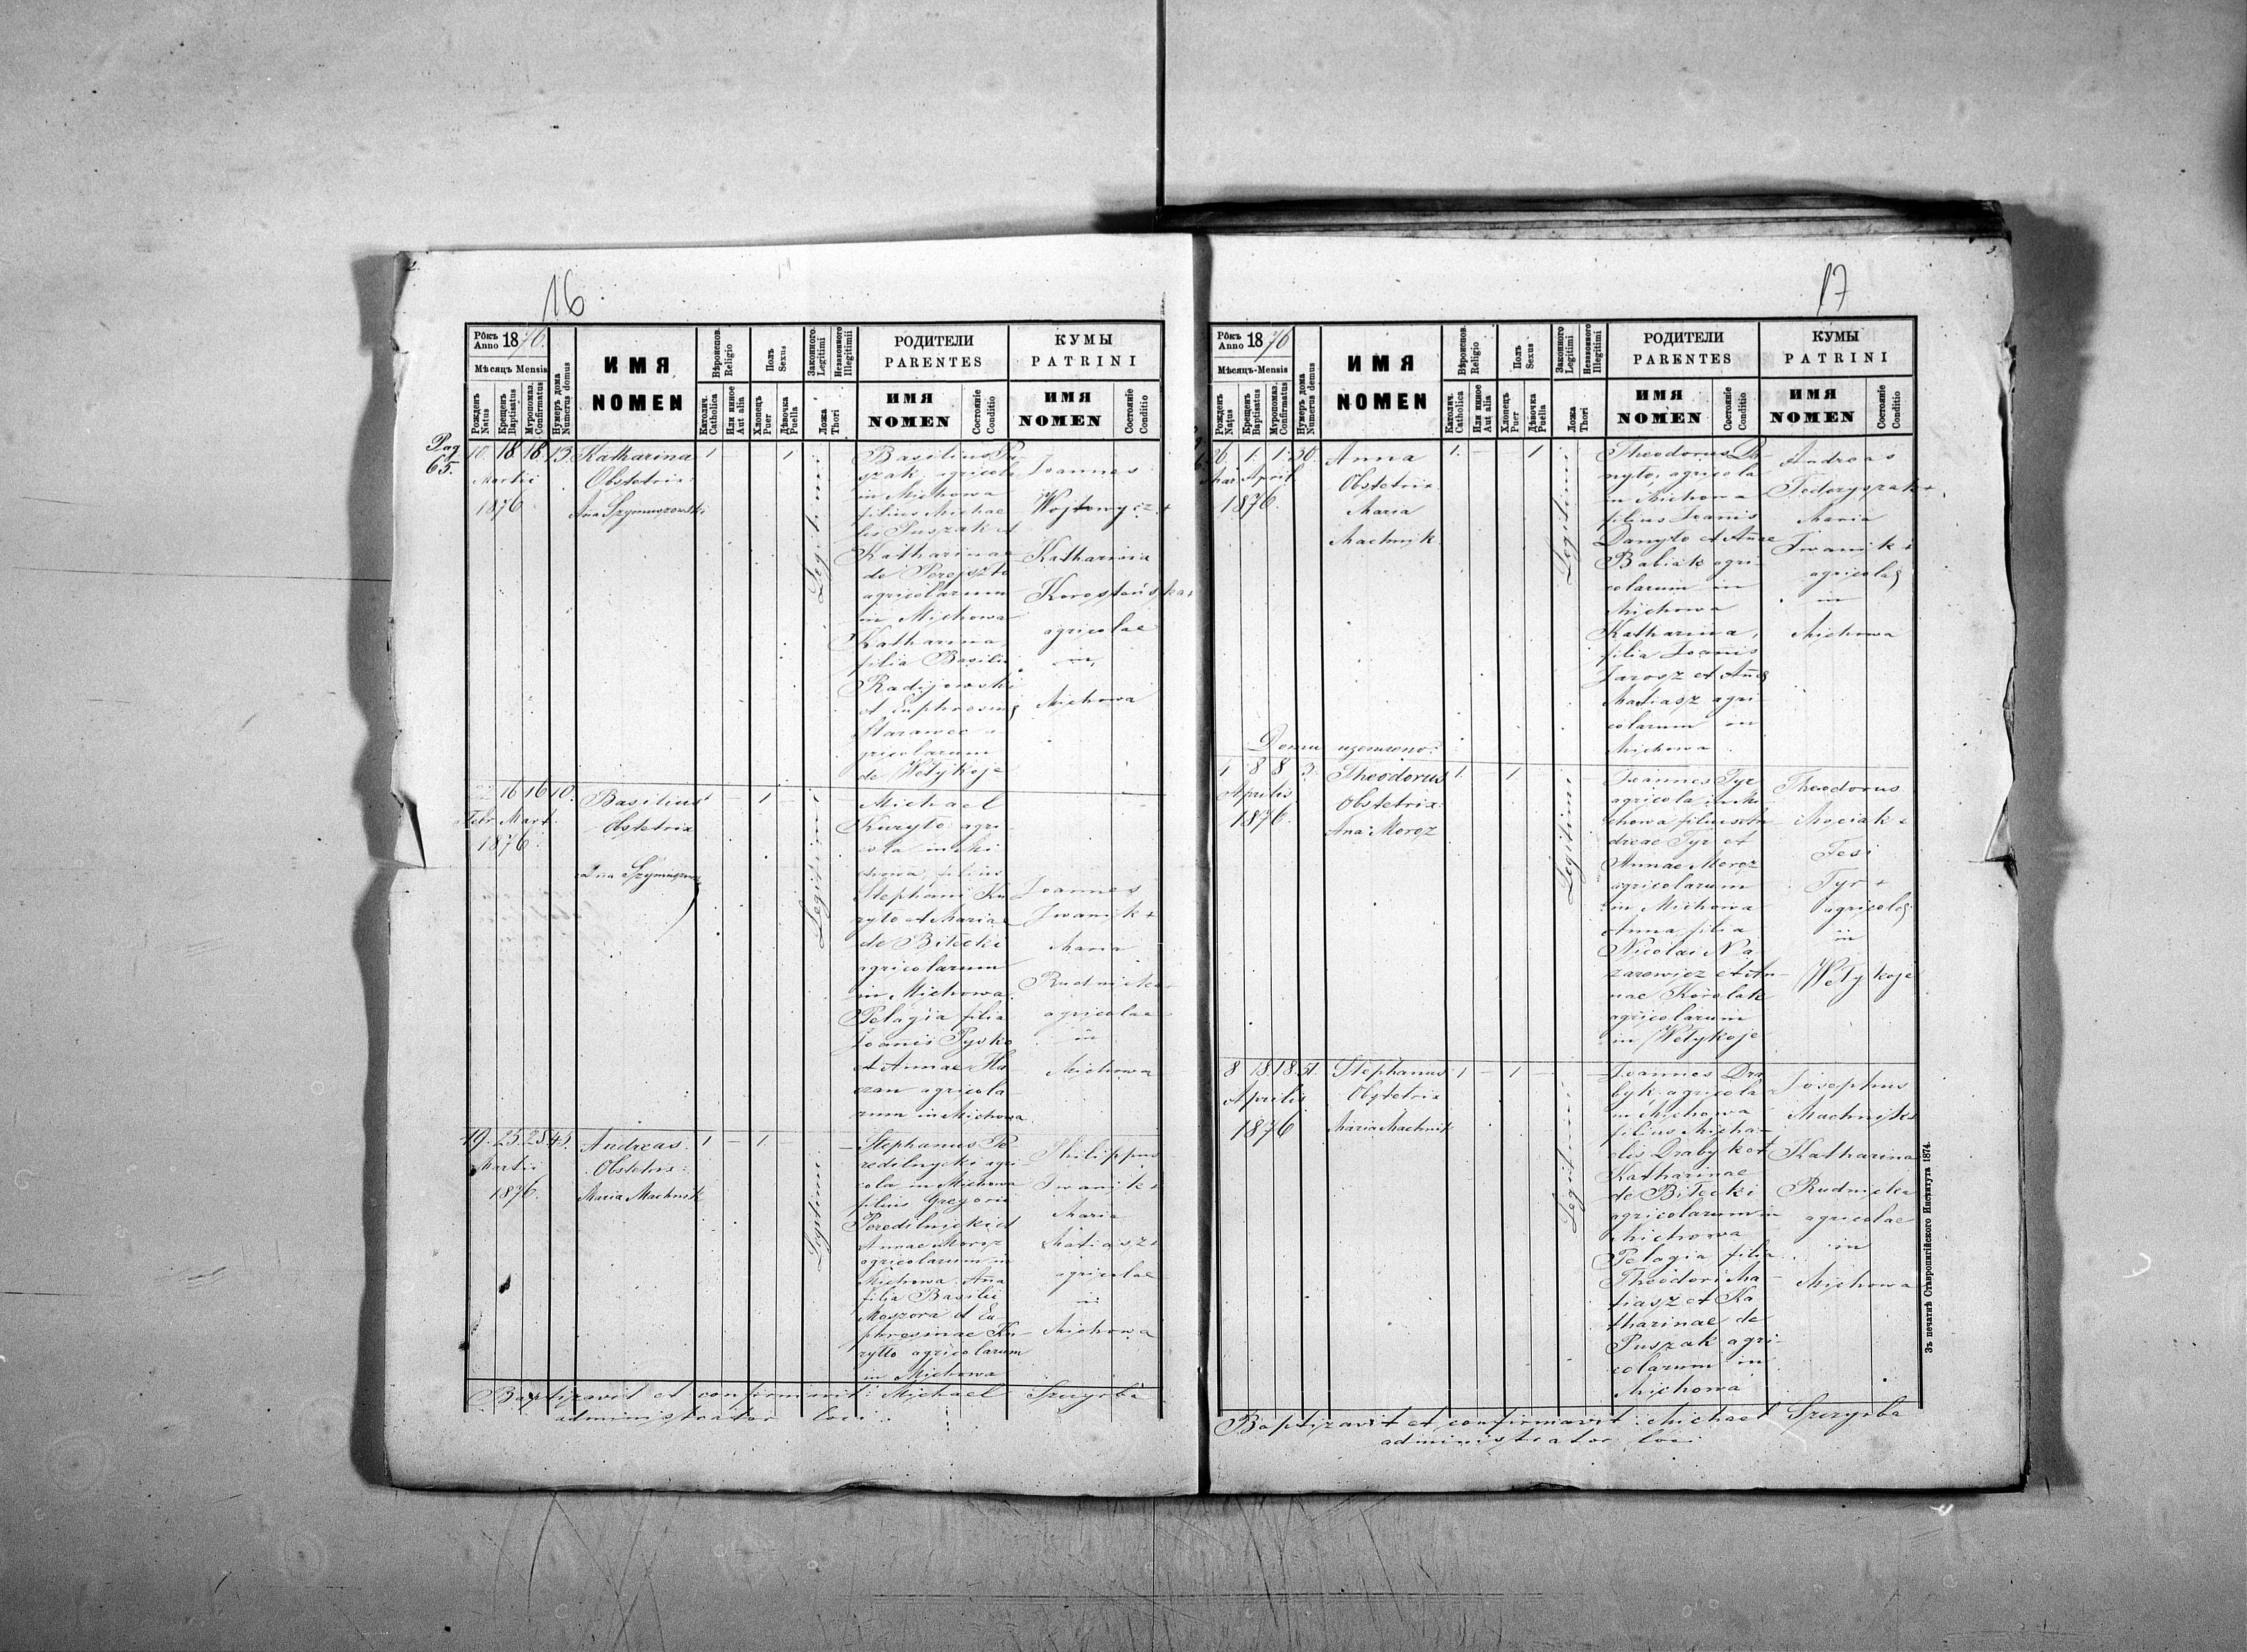 16
Рôкъ Anno 1876.
Мѣсяцъ Mensis
Рожденъ Natus
Крещенъ Baptisatus
Мѵропомаз. Confirmatus
Нумеръ дома Numerus domus
ИМЯ
NOMEN
Вѣроиспов. Religio
Католич. Catholica
Или иное Aut alia
Полъ Sexus
Хлопецъ Puer
Дѣвочка Puella
Законного Legitimi
Незаконного Illegitimi
Ложа Thori
РОДИТЕЛИ
PARENTES
ИМЯ
NOMEN
Состоянiе Conditio
КУМЫ
PATRINI
ИМЯ
NOMEN
Состоянiе Conditio
Pag
65.
10. 18. 18. 13. Katharina 1 — 1
Martii
1876
Obstetrix:
Anna Szymuszowski
Legitimi
Basilius Pu-
szak agricola
in Michowa
filius Michae
lis Puszak et
Katharinae
de Pereyszlo
agricolarum
in Michowa
Katharina
filia Basilii
Radijowski
et Euphrosinae
Starawec a-
gricolarum
de Wełykoje
Joannes
Wojtowycz +
Katharina
agricolae
in
Michowa
16 16 10. Basilius 1 — 1 —
Febr. Mart.
1876.
Obstetrix
Legitimi
Michael
Kuryło agri-
cola in Mi
chowa, filius
Stephani Ku
ryło et Mariae
de Biłecki
agricolarum
in Michowa.
Pelagia filia
Joanis Pysko
et Annae
agricola
rum in Michowa
Joannes
Iwanik +
Maria
Rudnicka +
agricolae
in
Michowa
19. 25. 25. 45. Andreas. 1 — 1. —
Martii
1876.
Obstetrix:
Maria Machnik
Legitimi
Stephanus Pe
redilnycki agri-
cola in Michowa
filius Gregorii
Peredilnicki et
Annae Moroz
agricolarum in
Michowa. Ana
filia Basilii
Moszora et Eu-
phrosinae Ku-
ryłło agricolarum
in Michowa
Philippus
Iwanik +
Maria
Matiasz +
agricolae
in
Michowa
Baptizavit et confirmavit: Michael Szczyrba
administrator loci.
17
3.
Рôкъ Anno 1876
Мѣсяцъ-Mensis
Рожденъ Natus
Крещенъ Baptisatus
Мѵропомаз. Confirmatus
Нумеръ дома Numerus domus
ИМЯ
NOMEN
Вѣроиспов. Religio
Католич. Catholica
Или иное Aut alia
Полъ Sexus
Хлопецъ Puer
Дѣвочка Puella
Законного Legitimi
Незаконного Illegitimi
Ложа Thori
РОДИТЕЛИ
PARENTES
ИМЯ
NOMEN
Состоянiе Conditio
КУМЫ
PATRINI
ИМЯ
NOMEN
Состоянiе Conditio
26. 1. 1. 30. Anna 1. — 1
Mar. April
1876.
Obstetrix
Maria
Machnik.
Legitimi
Theodorus Da-
nyło, agricola
in Michowa
filius Joanis
Danyło et Anae
Babiak agri-
colarum in
Michowa
Katharina,
filia Joanis
Jarosz et Anae
Matiasz agri-
colarum in
Michowa
Andreas
Fedoryszak +
Maria
Iwanik +
agricolae
in
Michowa
1 8 8 3. Theodorus 1. — 1
Aprilis
1876.
Obstetrix:
Ana Moroz
Legitimi
Joannes Tyr
agricola in Mi
chowa filius An
dreae Tyr et
Annae Moroz
agricolarum
in Michowa
Anna filia
Nicolai Na-
zarowicz et An-
nae Korolak
agricolarum
in Wełykoje
Theodorus
Mociak +
Fesi
Tyr +
agricolae
in
Wełykoje
8 18. 18. 51. Stephanus 1 — 1 —
Aprilis
1876
Obstetrix
Maria Machnik
Legitimi
Joannes Dra
byk agricola
in Michowa
filius Micha-
elis Drabyk et
Katharinae
de Biłecki
agricolarum in
Michowa
Pelagia filia
Theodori Ma-
tiasz et Ka
tharinae de
Puszak agri-
colarum in
Michowa
Josephus
Machnik +
Katharina
Rudnicka
agricolae
in
Michowa
Baptizavit et confirmavit: Michael Szczyrba
administrator loci
Зъ печатнѣ Ставропигiйского Института 1874.